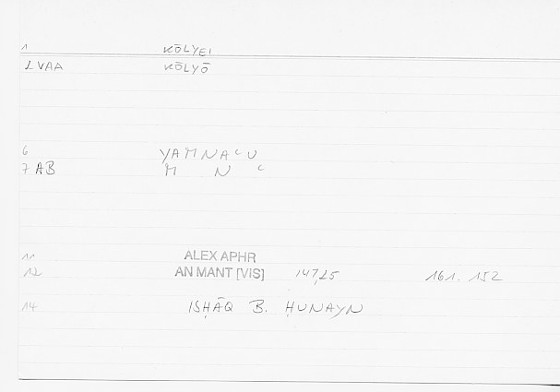 1 KŌLYEI
2 VAA KŌLYŌ
6 YAMNAᶜU
7 AB M N ᶜ
11 ALEX APHR
12 AN MANT [VIS] 147,25 161.152
14 ISḤĀQ B. ḤUNAYN